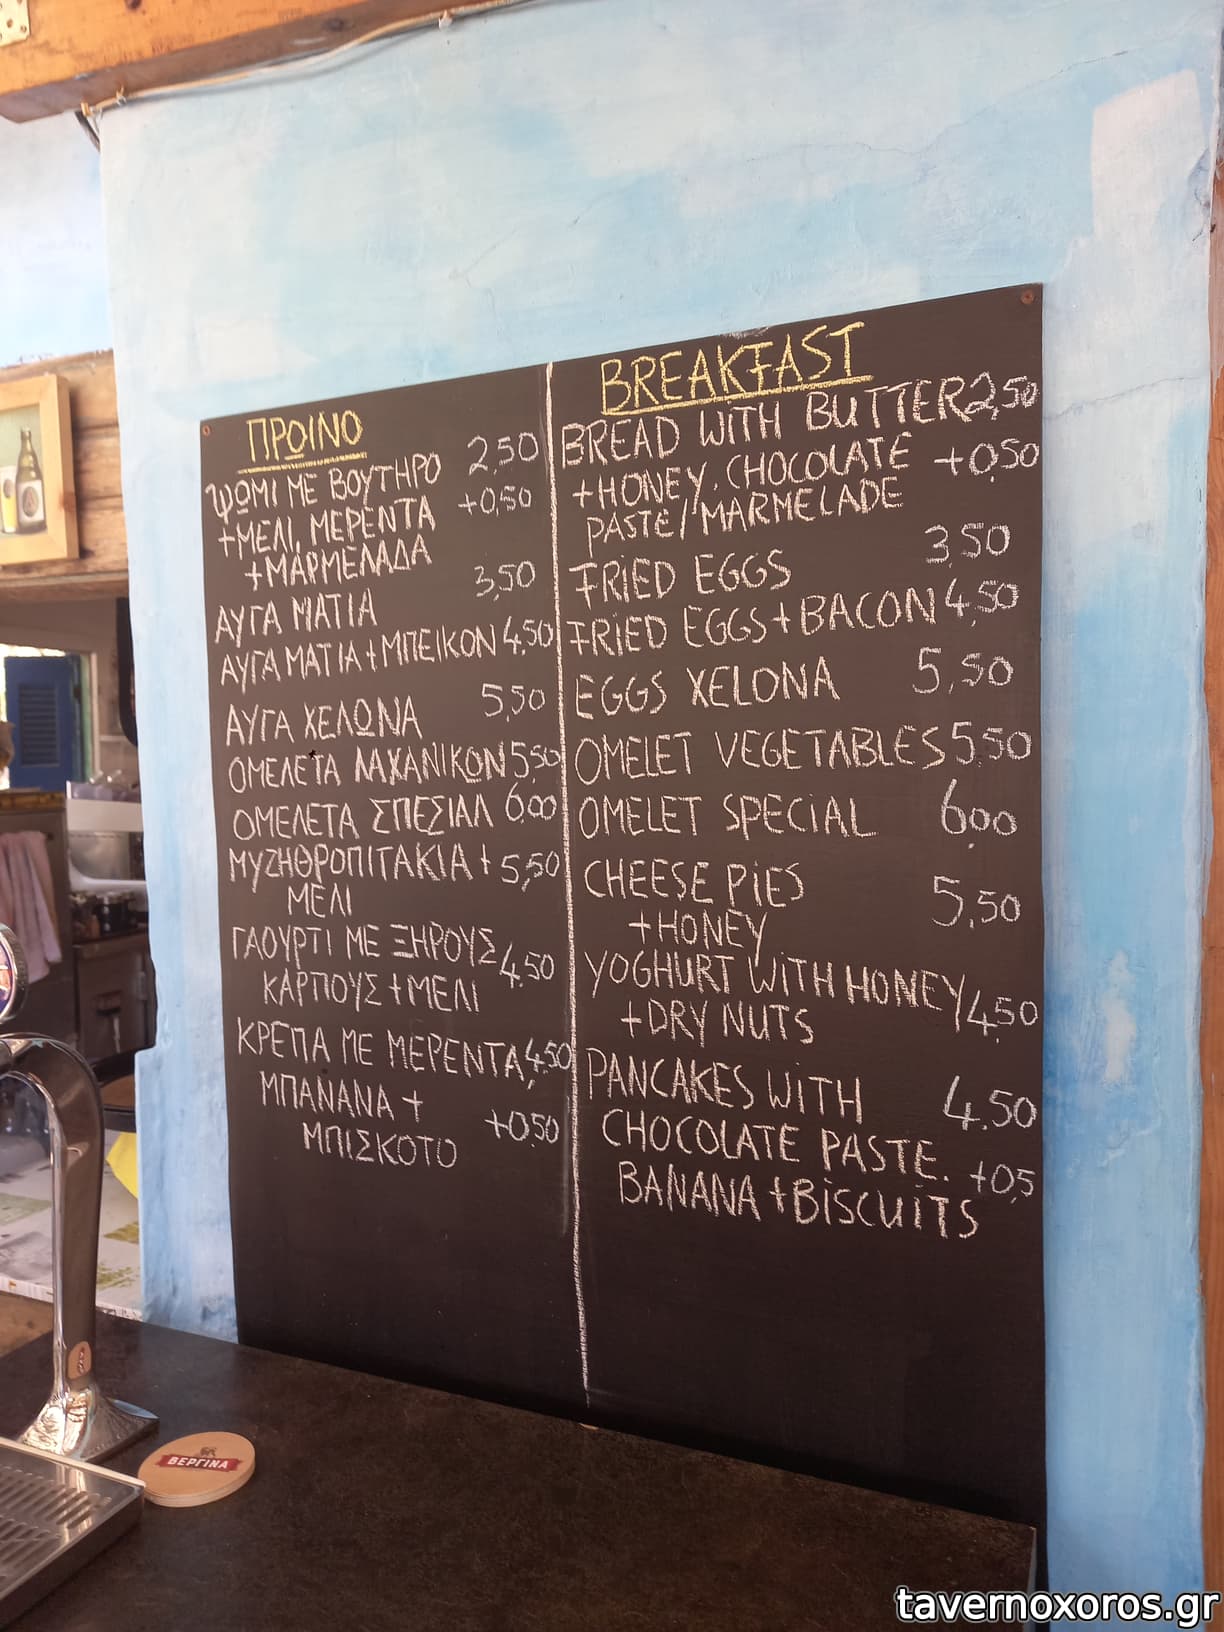 ΠΡΩΙΝΟ
ΨΩΜΙ ΜΕ ΒΟΥΤΗΡΟ 2,50
+ΜΕΛΙ, ΜΕΡΕΝΤΑ +0,50
+ΜΑΡΜΕΛΑΔΑ
ΑΥΓΑ ΜΑΤΙΑ 3,50
ΑΥΓΑ ΜΑΤΙΑ + ΜΠΕΙΚΟΝ 4,50
ΑΥΓΑ ΧΕΛΩΝΑ 5,50
ΟΜΕΛΕΤΑ ΛΑΧΑΝΙΚΩΝ 5,50
ΟΜΕΛΕΤΑ ΣΠΕΣΙΑΛ 6,00
ΜΥΖΗΘΡΟΠΙΤΑΚΙΑ + 5,50
ΜΕΛΙ
ΓΑΟΥΡΤΙ ΜΕ ΞΗΡΟΥΣ 4,50
ΚΑΡΠΟΥΣ + ΜΕΛΙ
ΚΡΕΠΑ ΜΕ ΜΕΡΕΝΤΑ, 4,50
ΜΠΑΝΑΝΑ +
ΜΠΙΣΚΟΤΟ +0,50
BREAKFAST
BREAD WITH BUTTER 2,50
+HONEY, CHOCOLATE +0,50
PASTE/MARMELADE
FRIED EGGS 3,50
FRIED EGGS + BACON 4,50
EGGS XELONA 5,50
OMELET VEGETABLES 5,50
OMELET SPECIAL 6,00
CHEESE PIES
+HONEY 5,50
YOGHURT WITH HONEY 4,50
+DRY NUTS
PANCAKES WITH 4,50
CHOCOLATE PASTE.
BANANA + BISCUITS +0,5
ΒΕΡΓΙΝΑ
tavernoxoros.gr